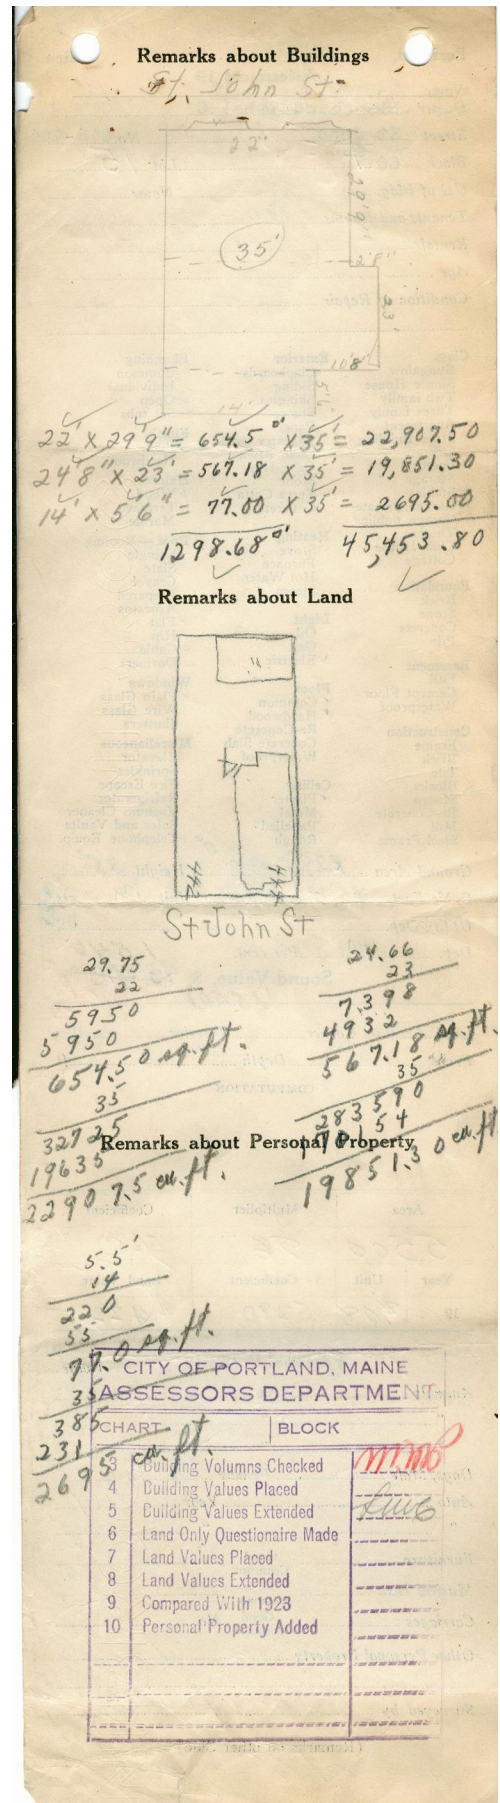 Remarks about Buildings
St. John St.
22'
29'9"
35'
2'8"
23'
10'8"
5'6"
14'
22' X 29'9" = 654.5 □' X 35' = 22,907.50
24'8" X 23' = 567.18 X 35' = 19,851.30
14' X 5'6" = 77.00 X 35' = 2695.00
1298.68 □' 45,453.80
Remarks about Land
442 444
St John St
29.75
22
5950
5950
654.50 sq. ft.
35
32725
19635
22907.5 cu. ft.
24.66
23
7398
4932
567.18 sq. ft.
35
283590
170154
19851.30 cu. ft.
Remarks about Personal Property
5.5'
14
220
55
77.0 sq. ft.
35
385
231
2695 cu. ft.
CITY OF PORTLAND, MAINE
ASSESSORS DEPARTMENT
CHART BLOCK
3 Building Volumns Checked
4 Building Values Placed
5 Building Values Extended
6 Land Only Questionaire Made
7 Land Values Placed
8 Land Values Extended
9 Compared With 1923
10 Personal Property Added